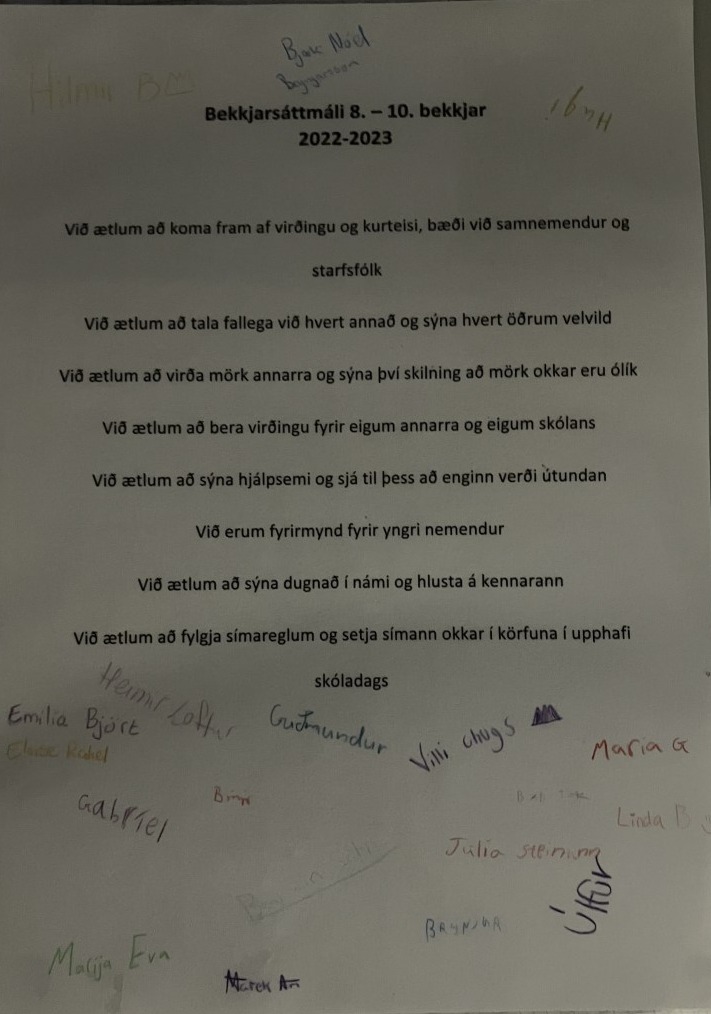 Bjak Nóel
Hilmir BM
Hugi
Bekkjarsáttmáli 8. – 10. bekkjar
2022-2023
Við ætlum að koma fram af virðingu og kurteisi, bæði við samnemendur og
starfsfólk
Við ætlum að tala fallega við hvert annað og sýna hvert öðrum velvild
Við ætlum að virða mörk annarra og sýna því skilning að mörk okkar eru ólík
Við ætlum að bera virðingu fyrir eigum annarra og eigum skólans
Við ætlum að sýna hjálpsemi og sjá til þess að enginn verði útundan
Við erum fyrirmynd fyrir yngri nemendur
Við ætlum að sýna dugnað í námi og hlusta á kennarann
Við ætlum að fylgja símareglum og setja símann okkar í körfuna í upphafi
skóladags
Heimir Loftur
Emilía Björt
Guðmundur
Villi chugs
Maria G
Gabríel
Linda B
Júlía
Úlfur
Matija Eva
Marek An